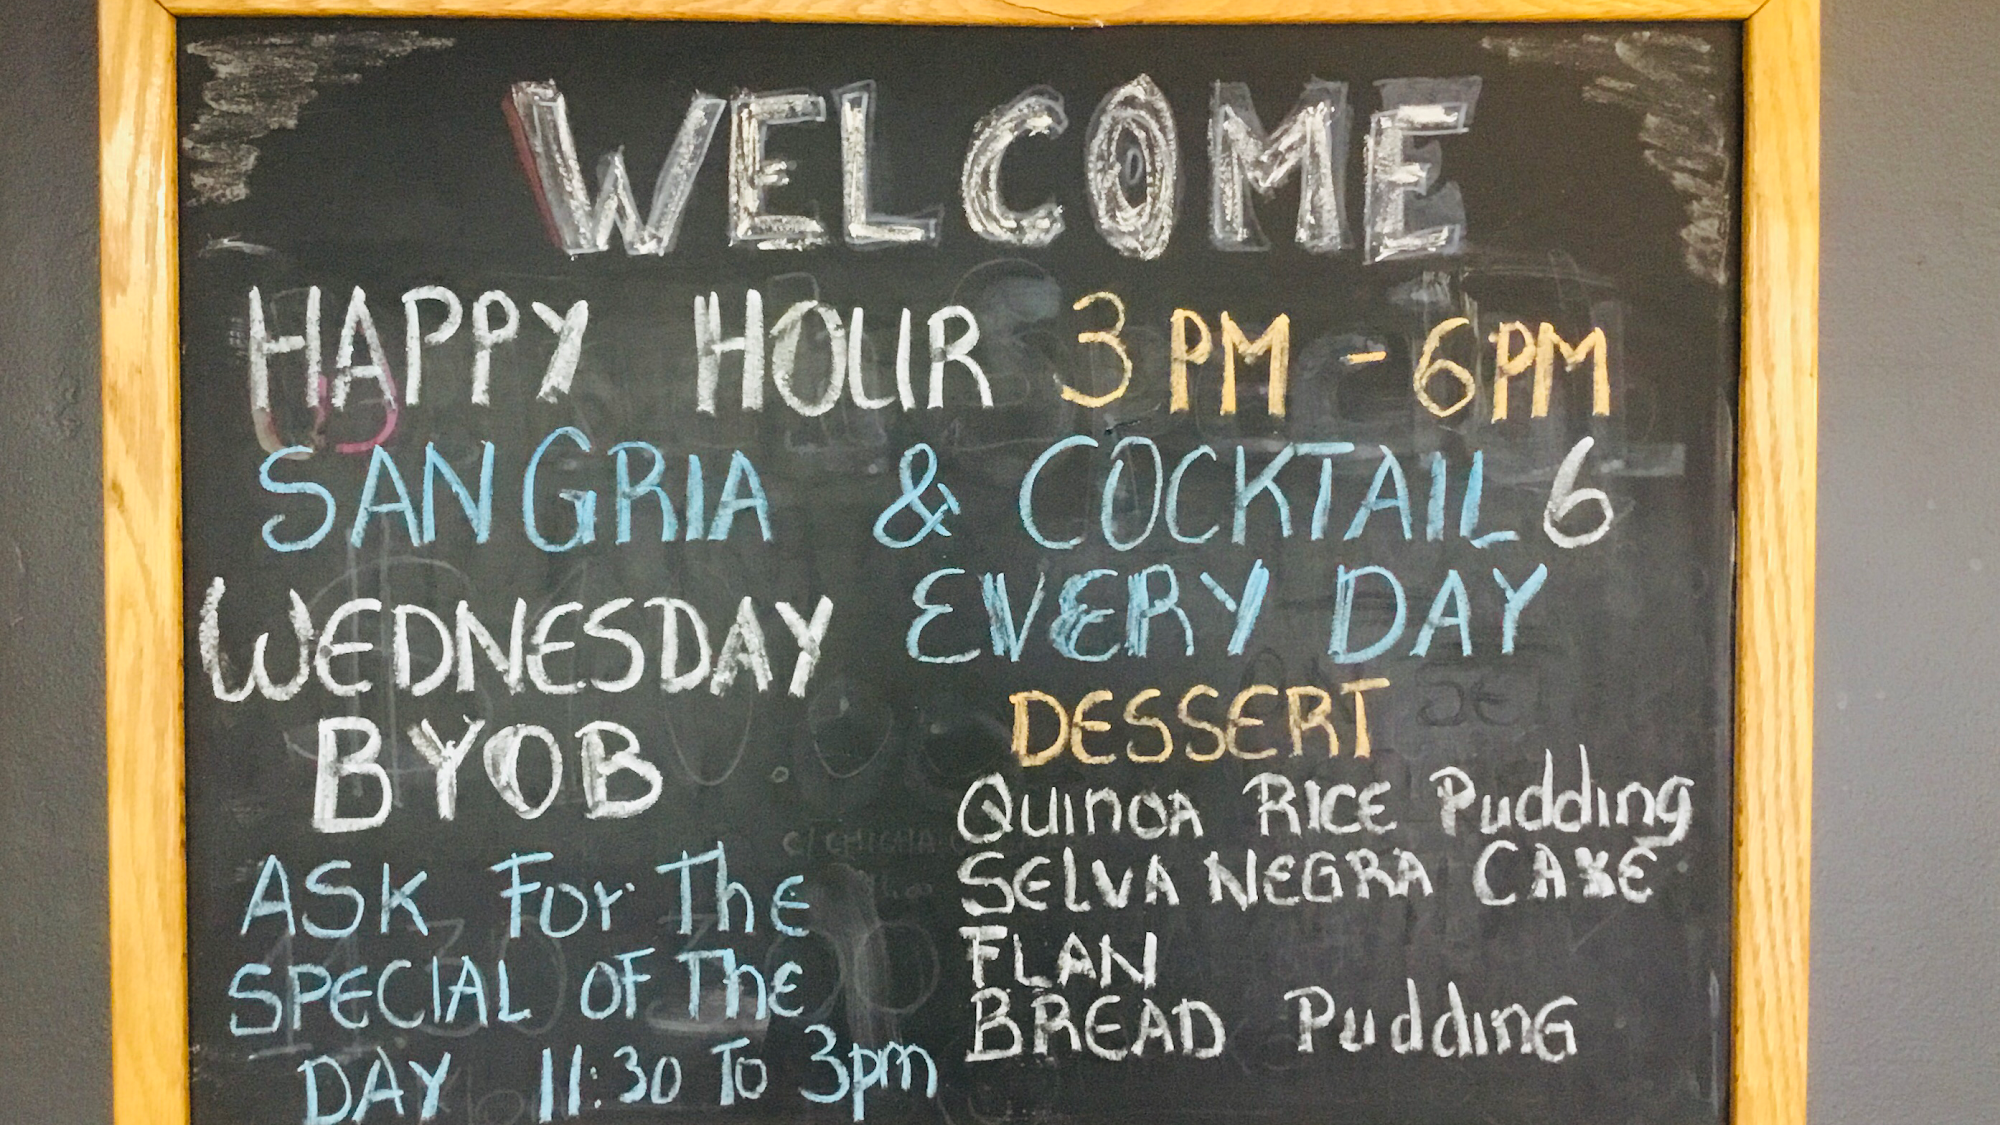 WELCOME
HAPPY HOUR 3PM - 6PM
SANGRIA & COCKTAIL 6
EVERY DAY
WEDNESDAY
BYOB
ASK For The
SPECIAL OF The
DAY 11:30 To 3pm
DESSERT
Quinoa RICE Pudding
SELVA NEGRA CAKE
FLAN
BREAD PuddinG